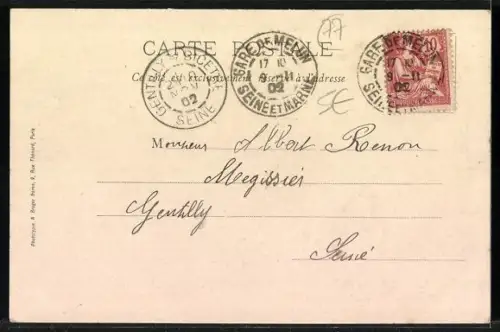 77
CARTE POSTALE
Ce côté est exclusivement réservé à l'adresse
GENTILLY-BICETRE
NOV
02
SEINE
GARE DE MELUN
17 10
9 -11
02
SEINE ET MARNE
GARE DE MELUN
10
9 -11
02
SEINE
SE
Monsieur Albert Renon
Megissier
Gentilly
Seine